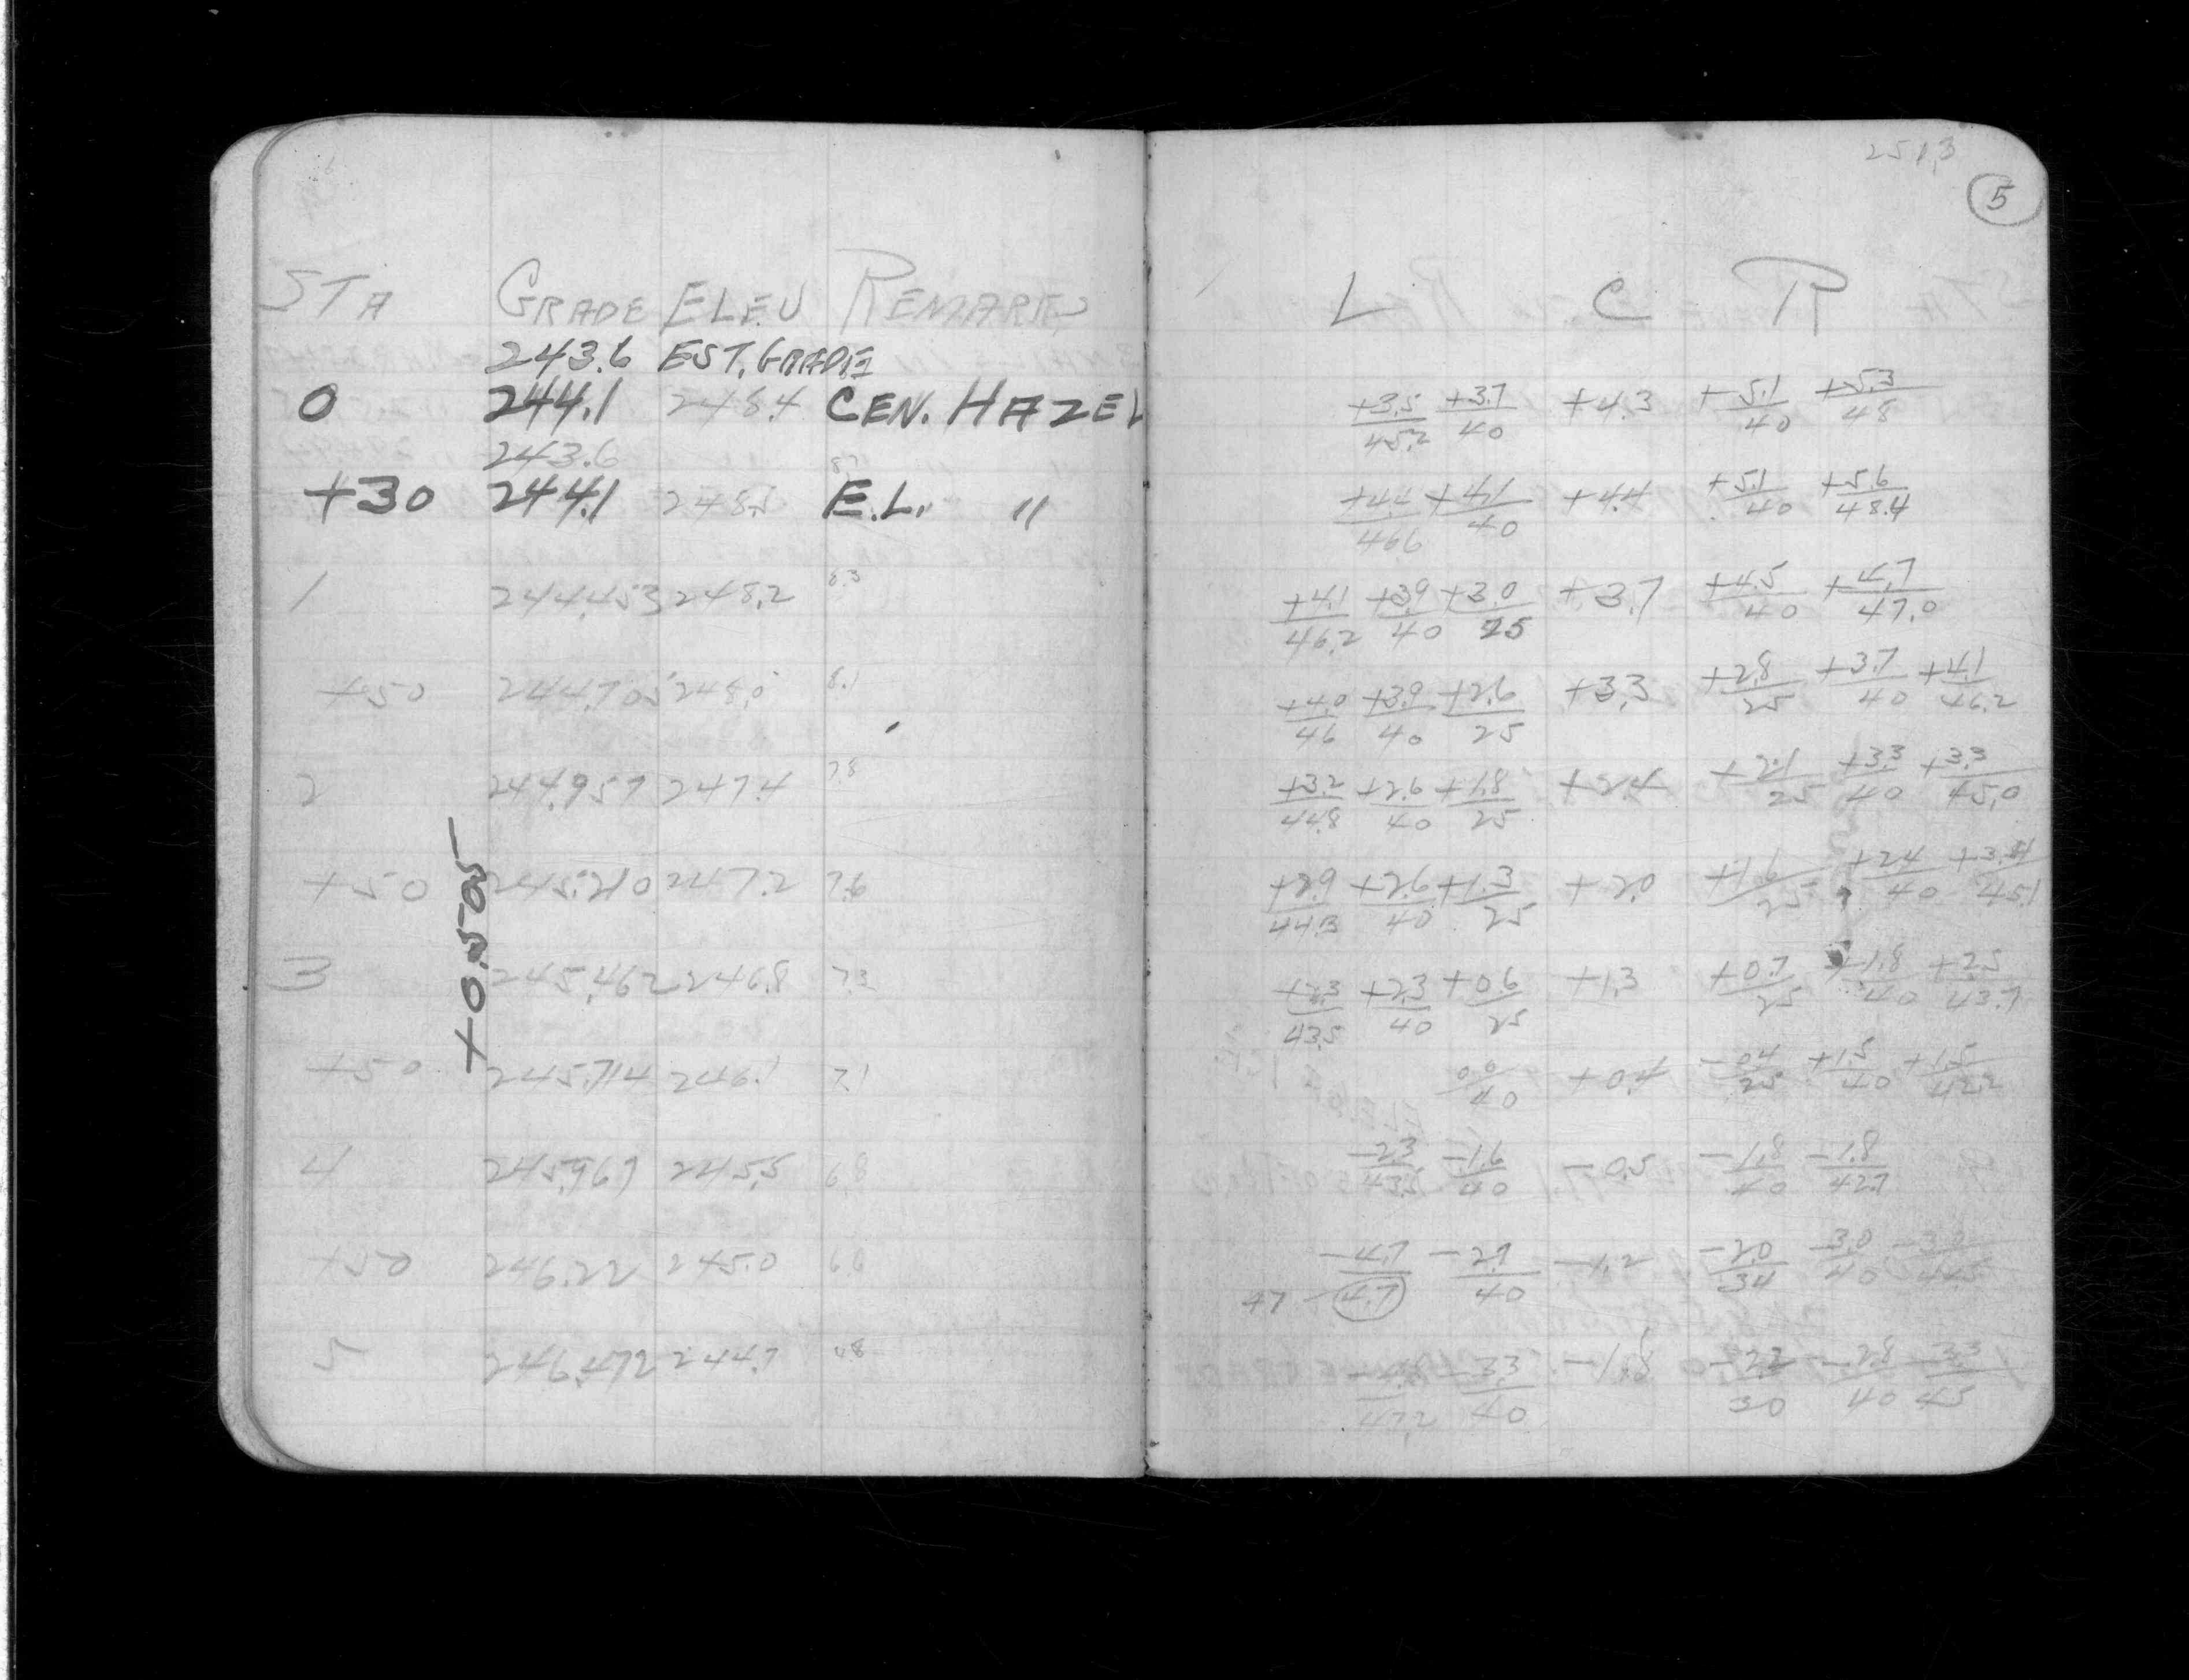 STA GRADE ELEV REMARKS
243.6 EST. GRADE
0 244.1 248.4 CEN. HAZEL
243.6
+30 244.1 248.5 E.L. "
1 244.453 248.2 8.3
+50 244.705 248.0 8.1
2 244.957 247.4 7.8
+50 245.210 247.2 7.6
3 245.462 246.8 7.3
+50 245.714 246.1 7.1
4 245.967 245.5 6.8
+50 246.22 245.0 6.6
5 246.472 244.7
+0.505
251.3
5
L C R
+3.5/45.2 +3.7/40 +4.3 +5.1/40 +5.3/48
+4.4/46.6 +4.1/40 +4.4 +5.1/40 +5.6/48.4
+4.1/46.2 +3.9/40 +3.0/25 +3.7 +4.5/40 +4.7/47.0
+4.0/46 +3.9/40 +2.6/25 +3.3 +2.8/25 +3.7/40 +4.1/46.2
+3.2/44.8 +2.6/40 +1.8/25 +2.4 +2.1/25 +3.3/40 +3.3/45.0
+2.9/44.3 +2.6/40 +1.3/25 +2.0 +1.6/25 +2.4/40 +3.4/45.1
+2.3/43.5 +2.3/40 +0.6/25 +1.3 +0.7/25 +1.8/40 +2.5/43.7
0.0/40 +0.4 -0.4/25 +1.5/40 +1.5/42.2
-2.3/43.5 -1.6/40 -0.5 -1.8/40 -1.8/42.7
-4.7/4.7 -2.7/40 -1.2 -2.0/34 -3.0/40
47
-4.8/47.2 -3.3/40 -1.8 -2.2/30 -2.8/40 -3.3/45